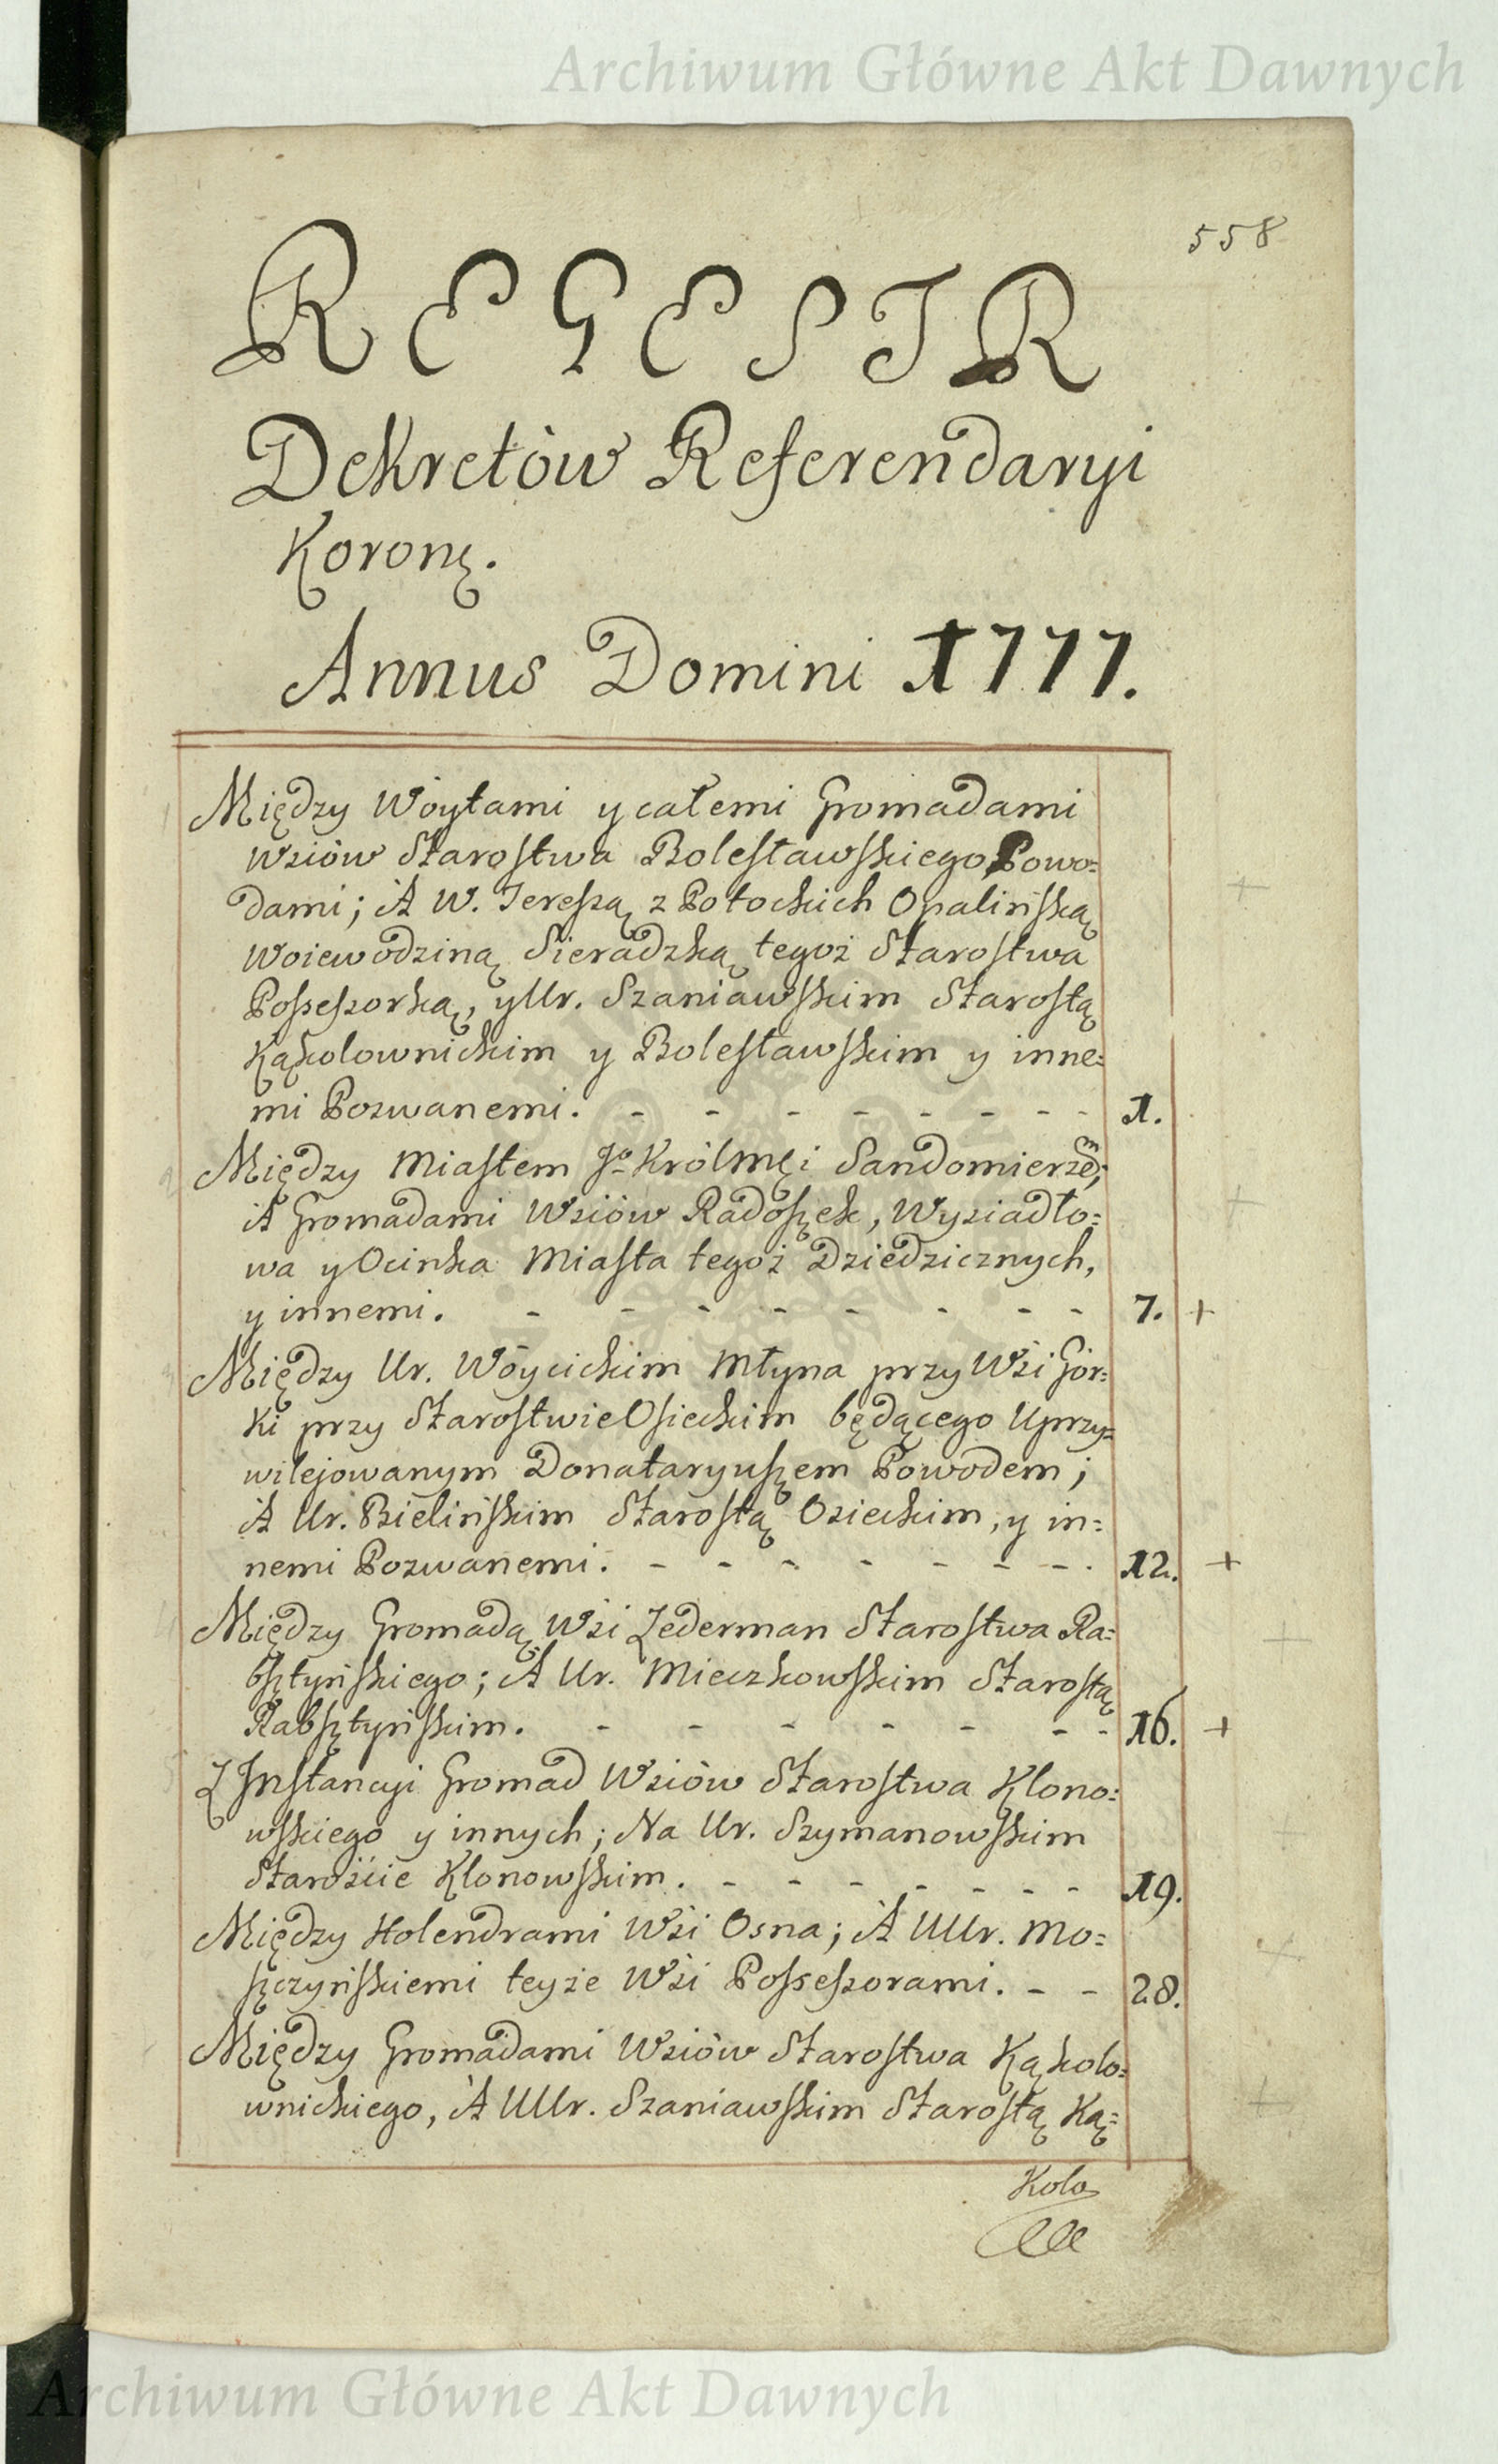 Archiwum Główne Akt Dawnych
558
REGESTR
Dekretów Referendaryi
Koronę.
Annus Domini 1777.
Między Woytami y całemi Gromadami
Wsiów Starostwa Bolesławskiego Powo=
dami; A W. Teressą z Potockich Opalińską
Woiewodziną Sieradzką tegoż Starostwa
Possessorką, y Ur. Szaniawskim Starostą
Kąkolownickim y Bolesławskim y inne=
mi Pozwanemi. - - - - - - - - 1.
Między Miastem Jo Królmęi Sandomierzem;
A Gromadami Wsiów Radoszek, Wysiadło=
wa y Ocinka Miasta tegoż Dziedzicznych,
y innemi. - - - - - - - - 7. +
Między Ur. Wóycickim Młyna przy Wsi Gór=
ki przy Starostwie Osieckim będącego Uprzy=
wilejowanym Donataryuszem Powodem;
A Ur. Bielińskim Starostą Osieckim, y in=
nemi Pozwanemi. - - - - - - - 12. +
Między Gromadą Wsi Zederman Starostwa Ra=
bsztyńskiego; A Ur. Mieczkowskim Starostą
Rabsztyńskim. - - - - - - - 16. +
Z Instancyi Gromad Wsiów Starostwa Klono=
wskiego y innych; Na Ur. Szymanowskim
Starośćie Klonowskim. - - - - - - - 19.
Między Holendrami Wsi Osna; A UUr. Mo=
szczyńskiemi teyże Wsi Possessorami. - - 28.
Między Gromadami Wsiów Starostwa Kąkolo=
wnickiego, A UUr. Szaniawskim Starostą Ką=
Kolo
Archiwum Główne Akt Dawnych